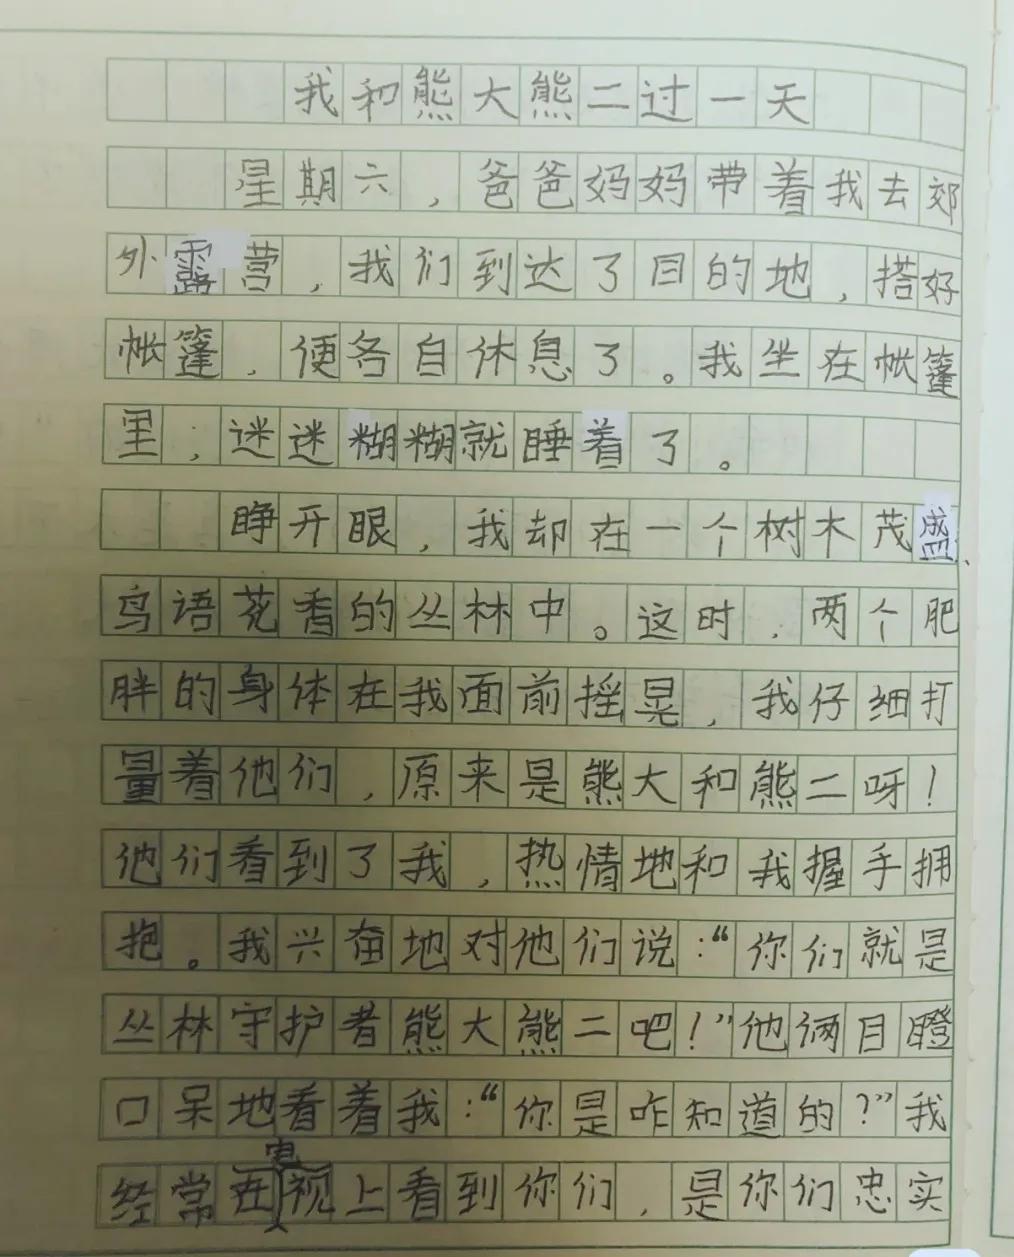 我和熊大熊二过一天
星期六,爸爸妈妈带着我去郊
外露营,我们到达了目的地,搭好
帐篷,便各自休息了。我坐在帐篷
里,迷迷糊糊就睡着了。
睁开眼,我却在一个树木茂盛、
鸟语花香的丛林中。这时,两个肥
胖的身体在我面前摇晃,我仔细打
量着他们,原来是熊大和熊二呀!
他们看到了我,热情地和我握手拥
抱。我兴奋地对他们说:“你们就是
丛林守护者熊大熊二吧!”他俩目瞪
口呆地看着我:“你是咋知道的?”我
经常在电视上看到你们,是你们忠实